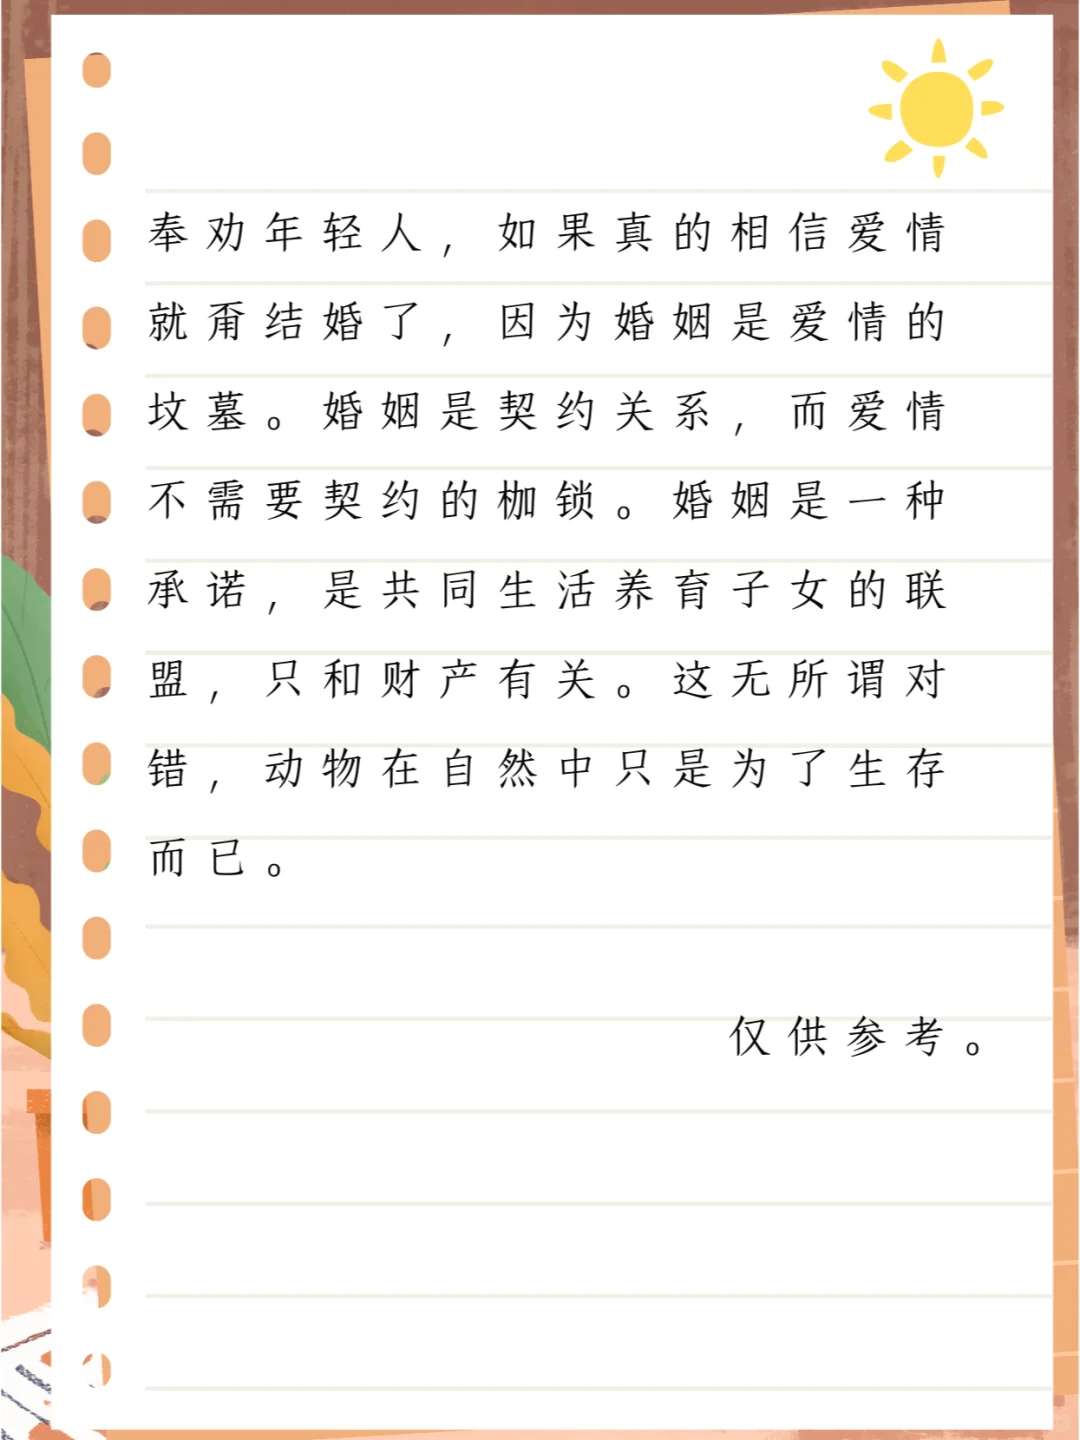 奉劝年轻人，如果真的相信爱情
就甭结婚了，因为婚姻是爱情的
坟墓。婚姻是契约关系，而爱情
不需要契约的枷锁。婚姻是一种
承诺，是共同生活养育子女的联
盟，只和财产有关。这无所谓对
错，动物在自然中只是为了生存
而已。
仅供参考。